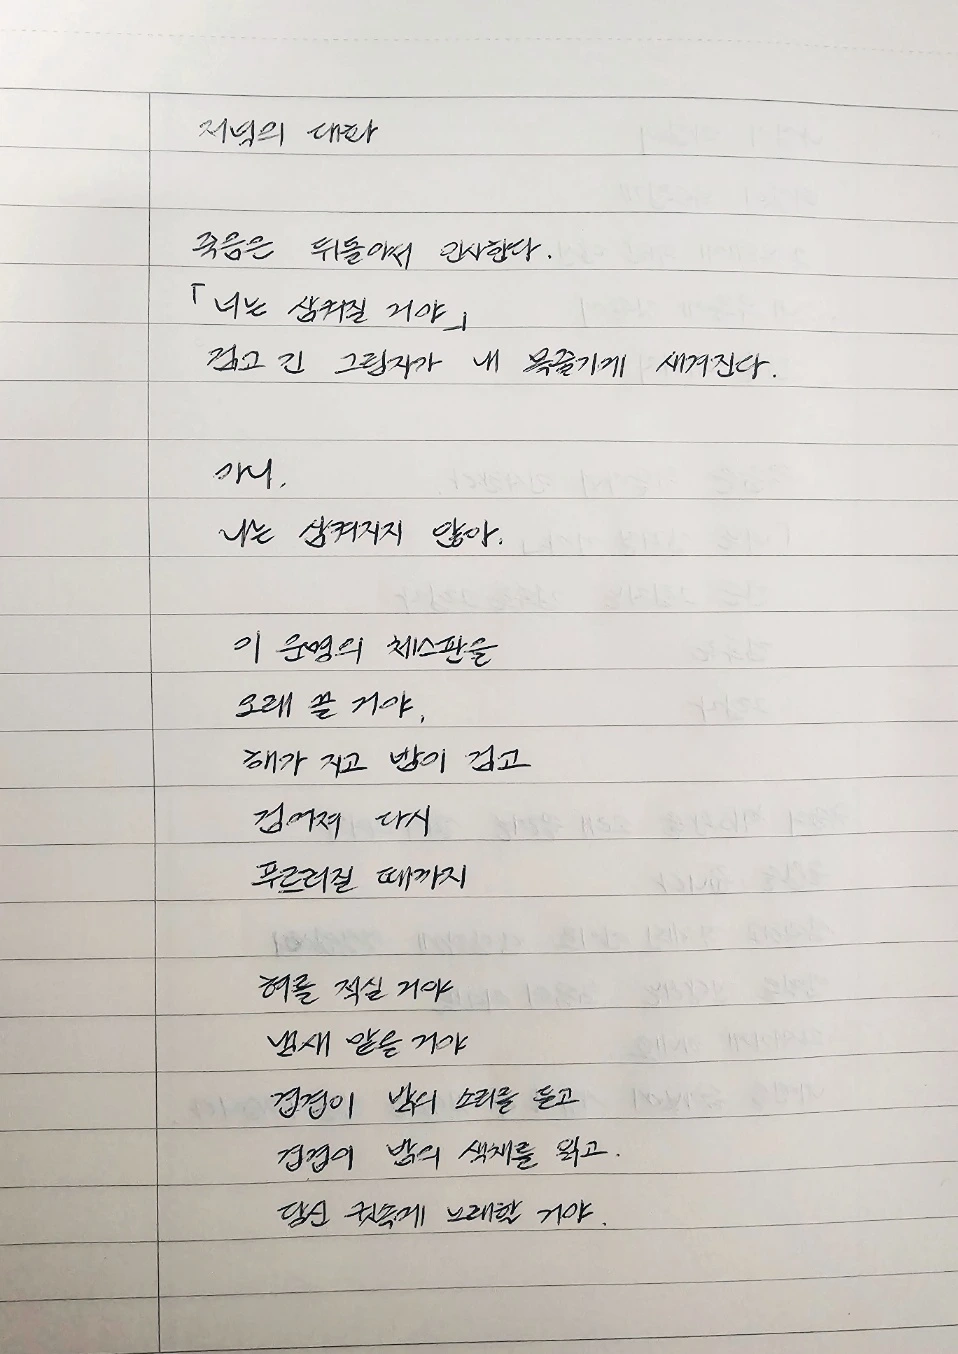 저녁의 대화
죽음은 뒤돌아서 인사한다.
「너는 삼켜질 거야」
검고 긴 그림자가 내 목줄기에 새겨진다.
아니.
나는 삼켜지지 않아.
이 운명의 체스판을
오래 끌 거야,
해가 지고 밤이 검고
검어져 다시
푸르러질 때까지
혀를 적실 거야
냄새 맡을 거야
겹겹이 밤의 소리를 듣고
겹겹이 밤의 색채를 읽고.
당신 귓속에 노래할 거야.